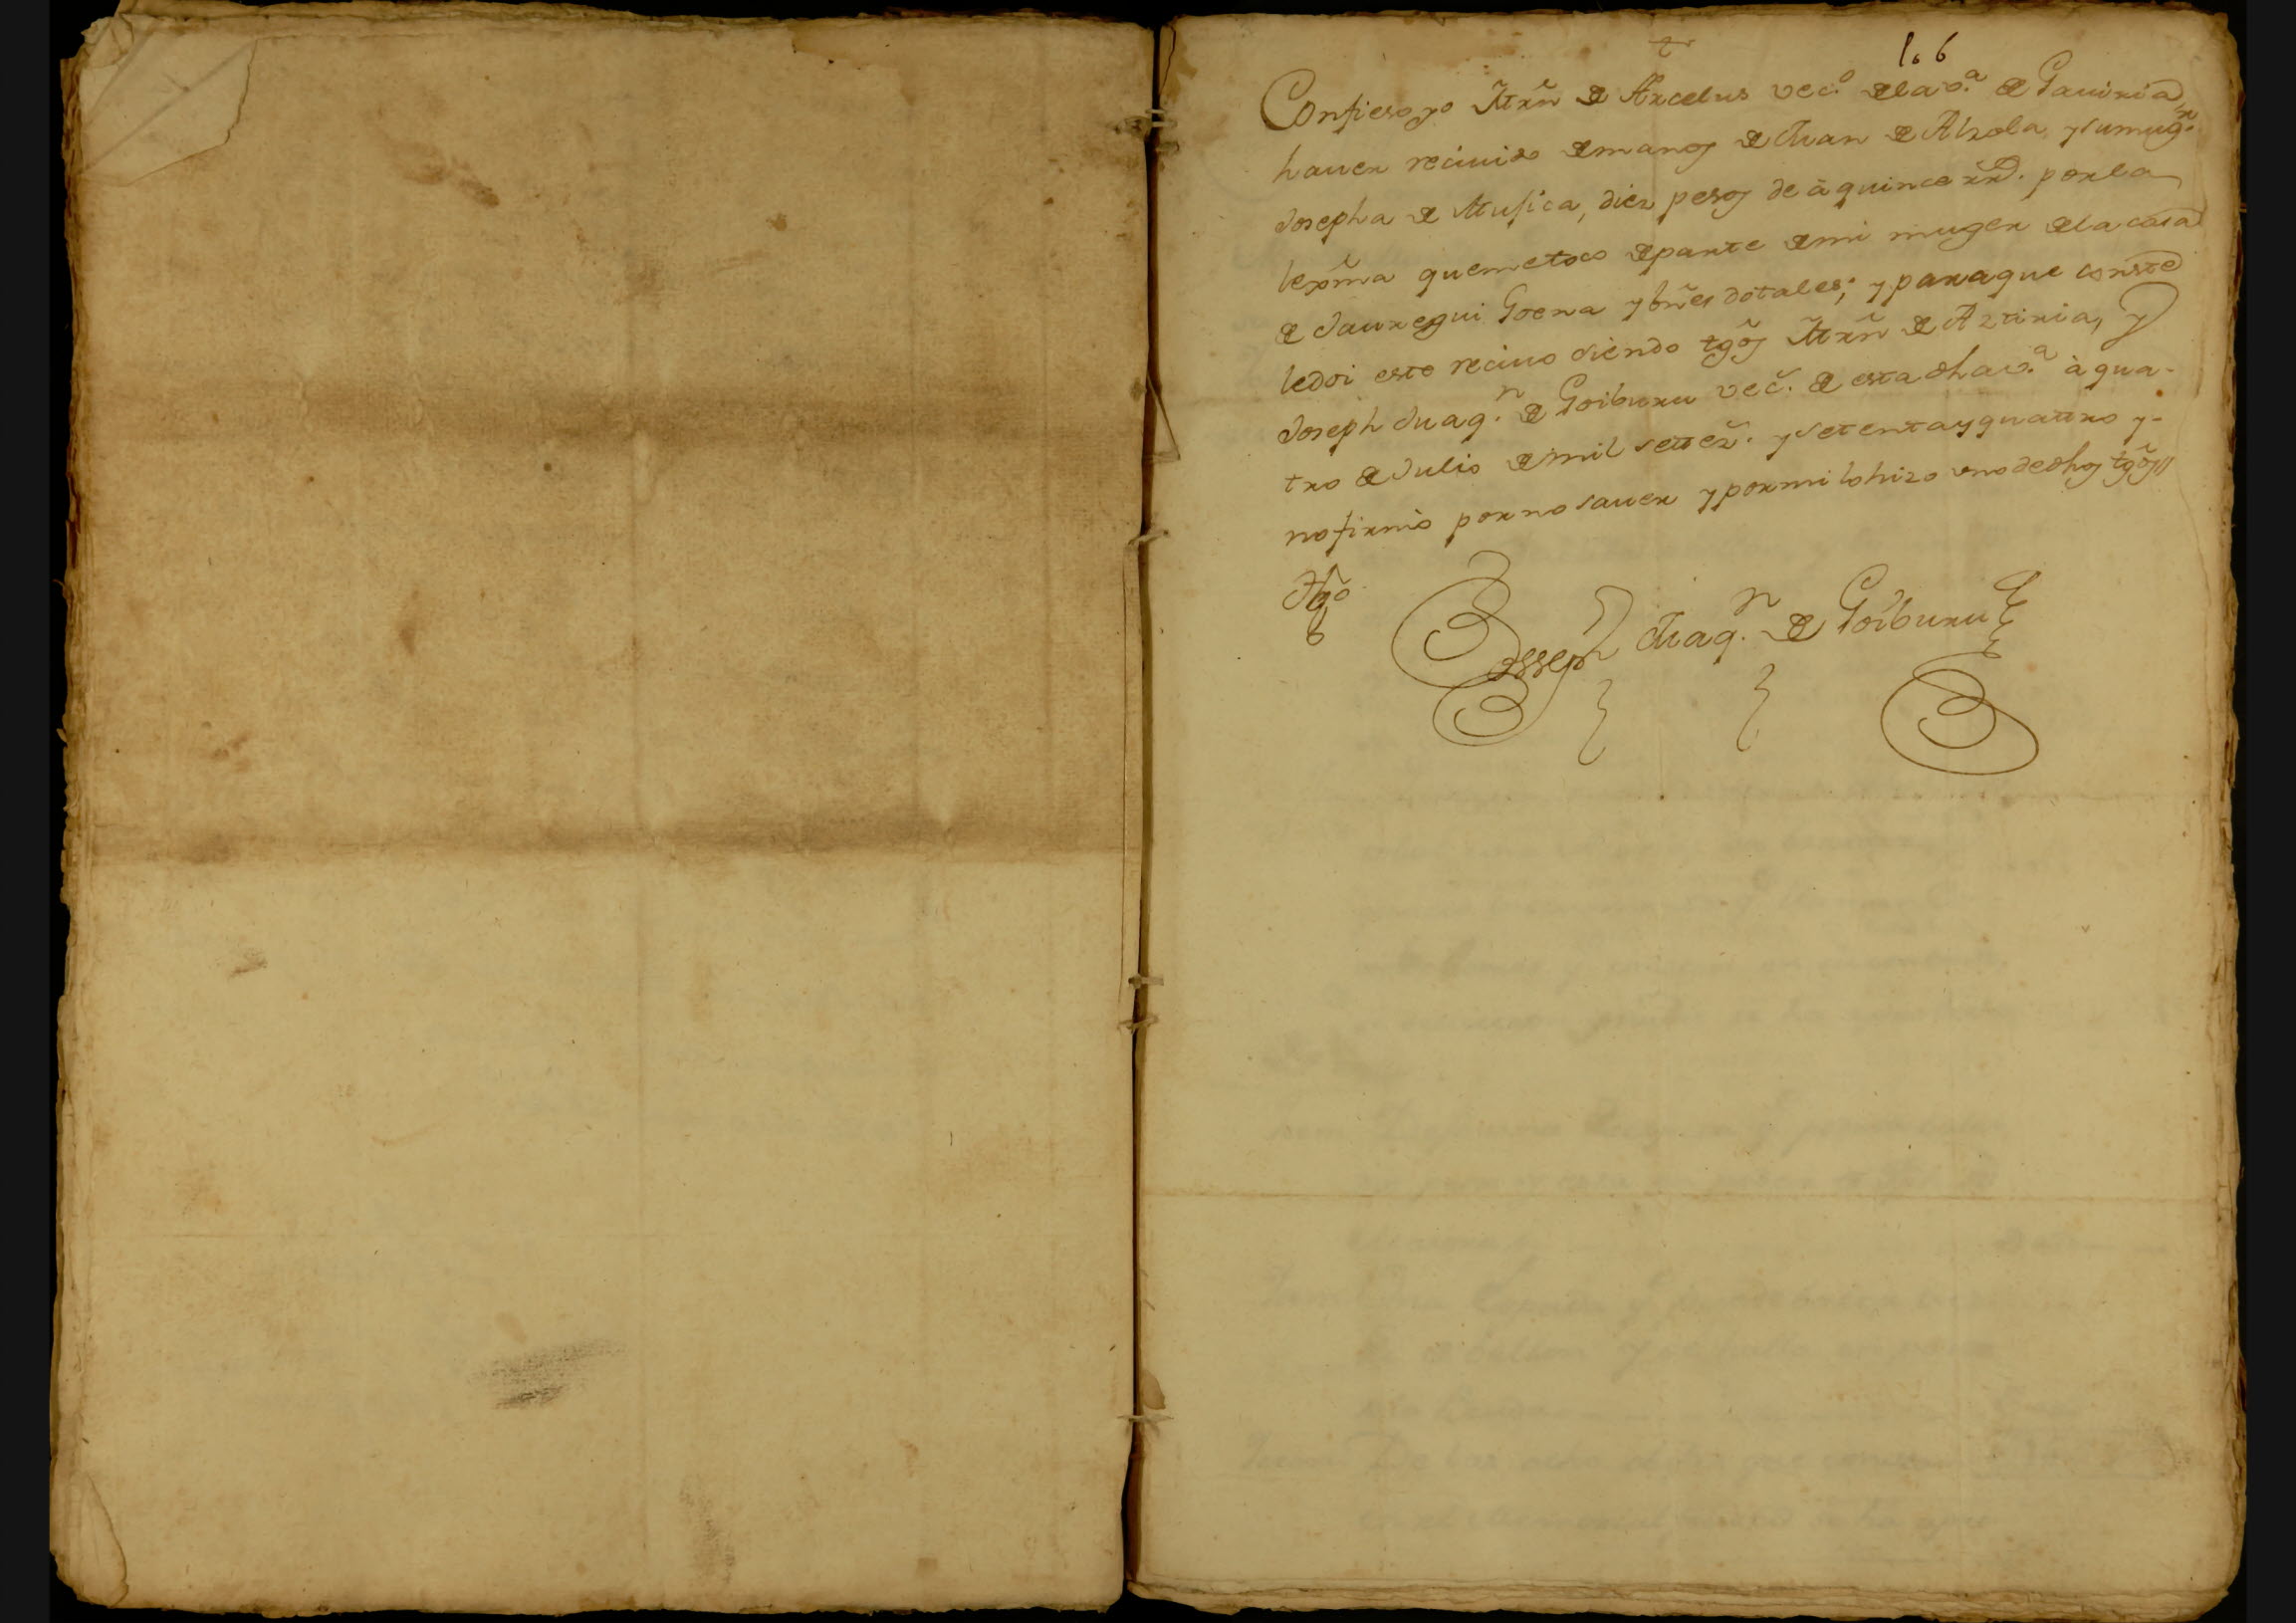 1o 6
Confieso yo Mrñ de Arcelus vec.º de la v.ª de Gauiria
hauer reciuido de manos de Juan de Alzola, y su mug.r
Josepha de Musica, diez pesos de à quince rrD. por la
lexma que me toco de parte de mi muger de la casa
de Jauregui Goena y bñes dotales; y para que conste
le doi este reciuo siendo tgôs Mrñ de Aztiria, y
Joseph Juaq.n de Goiburu več. de esta dha v.ª à qua-
tro de Julio de mil setteź. y setenta y quattro y-
no firmò por no sauer y por mi lo hizo vno de dhos tgôs//
Tgô
Joseph Juaq.n de Goiburu